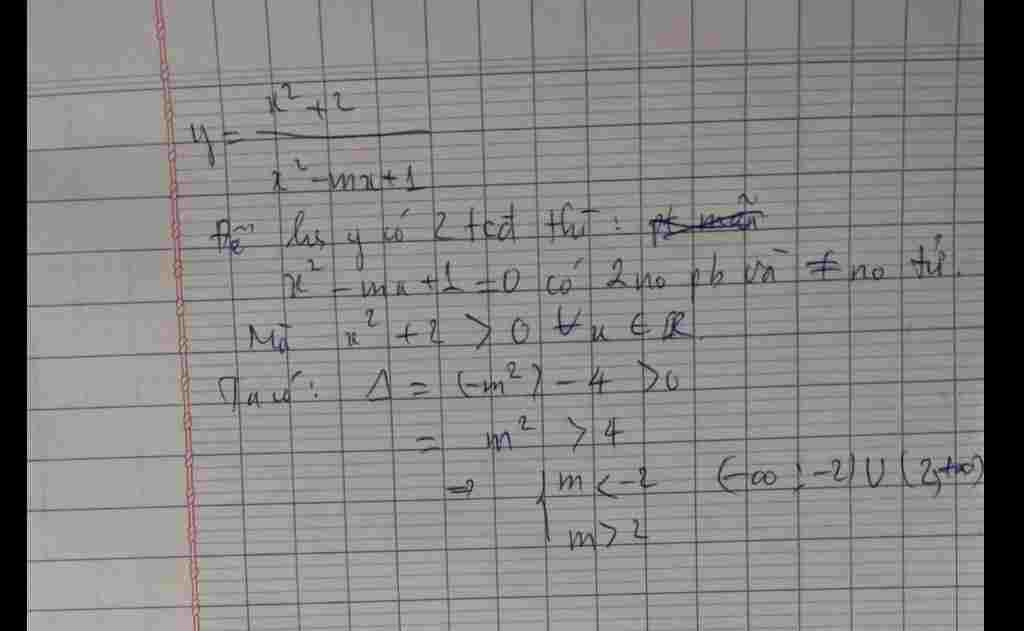 y = \frac{x^2 + 2}{x^2 - mx + 1}
Để hs y có 2 tcđ thì :
x^2 - mx + 1 = 0 có 2 no pb và ≠ no tử.
Mà x^2 + 2 > 0 ∀x ∈ R
Ta có : Δ = (-m^2) - 4 > 0
= m^2 > 4
⇒ { m < -2 (-∞ ; -2) ∪ (2; +∞)
m > 2